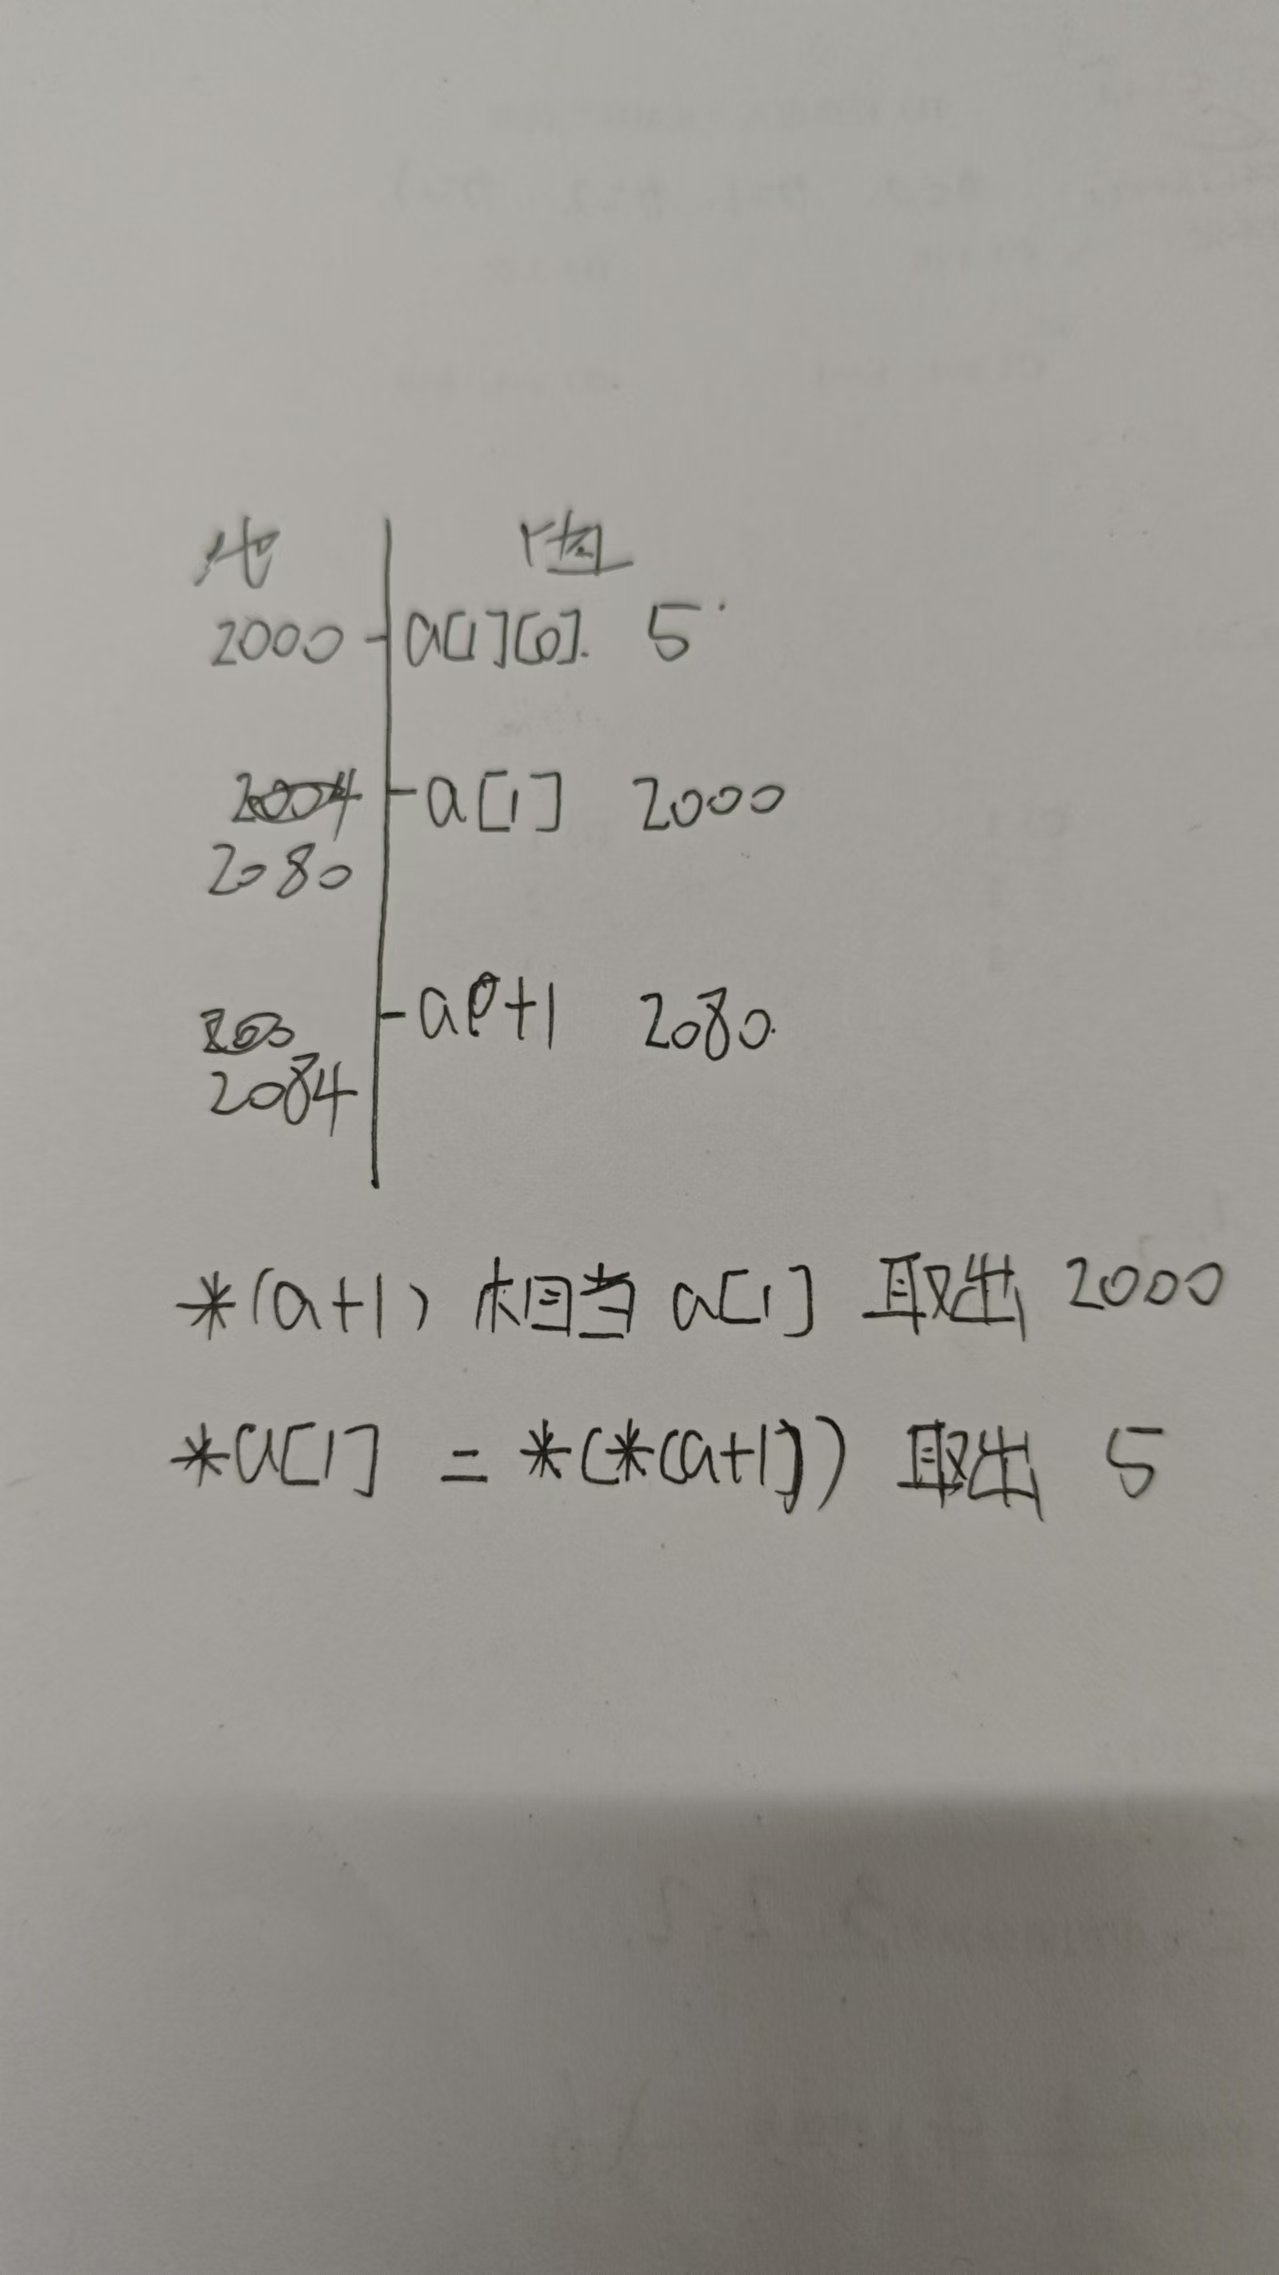 地 值
2000 a[1][0]. 5
a[1] 2000
2080
a+1 2080
2084
*(a+1) 相当 a[1] 取出 2000
*a[1] = *(*(a+1)) 取出 5